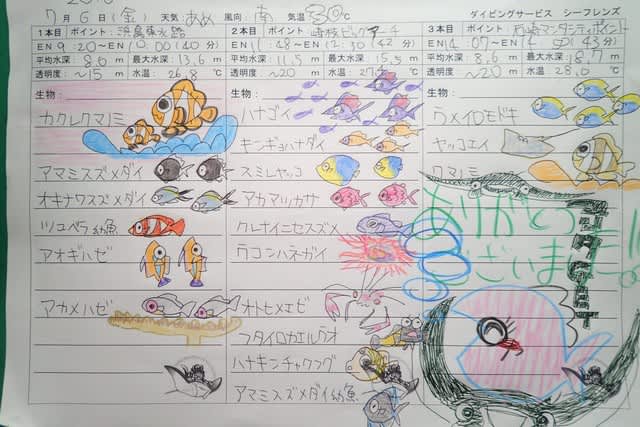 7月6日(金) 天気 あめ 風向 南 気温 30℃ ダイビングサービス シーフレンズ
1本目 ポイント:浜島東水路
EN 9:20〜10:00(40分)
平均水深 8.0 m 最大水深 13.6 m
透明度 〜15 m 水温: 26.8 ℃
生物:
カクレクマノミ
アマミスズメダイ
オキナワスズメダイ
ツユベラ幼魚
アオギハゼ
アカメハゼ
2本目 ポイント:崎枝ビッグアーチ
EN 11:48〜12:30(42分)
平均水深 11.5 m 最大水深 15.5 m
透明度 〜20 m 水温: ℃
生物:
ハナゴイ
キンギョハナダイ
スミレヤッコ
アカマツカサ
クレナイニセスズメ
ウコンハネガイ
オトヒメエビ
フタイロカエルウオ
ハナキンチャクフグ
アマミスズメダイ幼魚
3本目 ポイント:石崎マンタシティポイント
EN 14:07〜 (43分)
平均水深 8.6 m 最大水深 18.7 m
透明度 〜20 m 水温: 28.0 ℃
生物:
ウメイロモドキ
ヤッコエイ
クマノミ
ありがとう
ございました!!